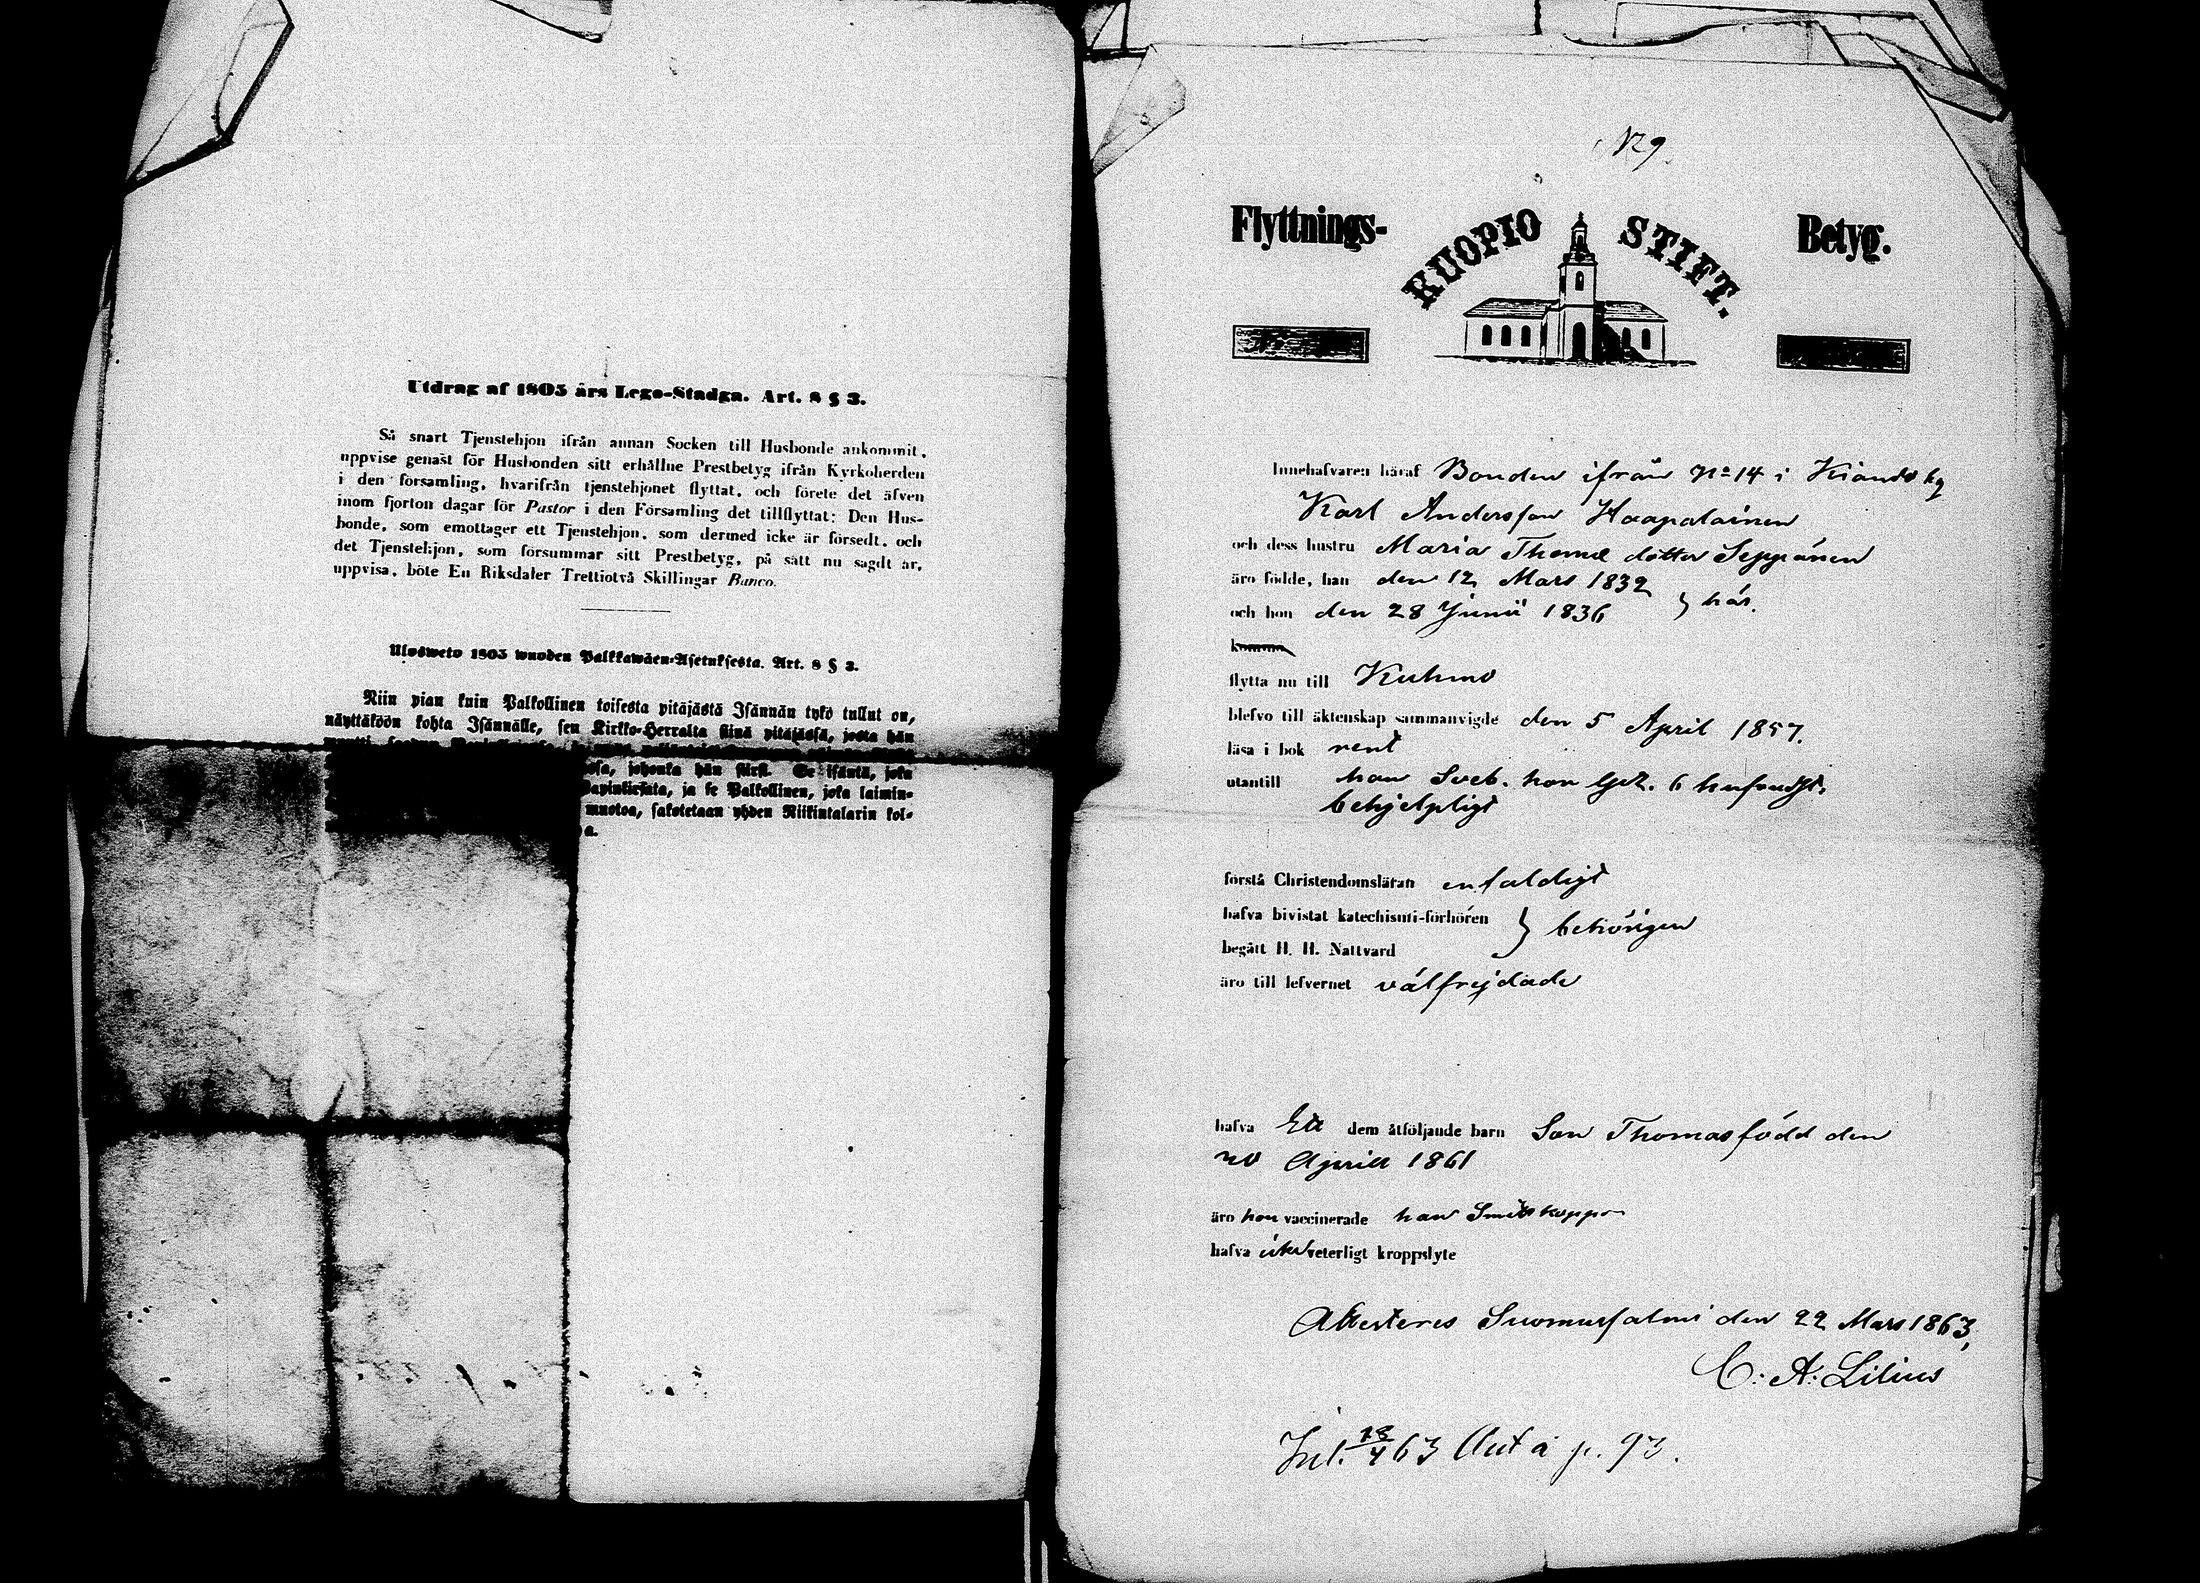 Utdrag af 1805 års Lego-Stadga. Art. 8 § 3.
Så snart Tjenstehjon ifrån annan Socken till Husbonde ankommit,
uppvise genast för Husbonden sitt erhållne Prestbetyg ifrån Kyrkoherden
i den församling, hvarifrån tjenstehjonet flyttat, och förete det äfven
inom fjorton dagar för Pastor i den Församling det tillflyttat; Den Hus-
bonde, som emottager ett Tjenstehjon, som dermed icke är försedt, och
det Tjenstehjon, som försummar sitt Prestbetyg, på sätt nu sagdt är,
uppvisa, böte En Riksdaler Trettiotvå Skillingar Banco.
Ulosweto 1805 wuoden Palkkawäen-Asetuksesta. Art. 8 § 3.
Niin pian kuin Palkollinen toisesta pitäjästä Isännän tykö tullut on,
näyttäköön kohta Isännälle, sen Kirkko-Herralta siinä pitäjässä, josta hän
johonka hän siirsi. Se isäntä, joka
ja se Palkollinen, joka laimin-
sakotetaan yhden Riikintalarin kol-
a.
N 9
Flyttnings- KUOPIO STIFT. Betyg.
Innehafvaren häraf Bonden ifrån No 14 i Kianto by
Karl Andersson Haapalainen
och dess hustru Maria Thomæ dotter Seppänen
äro födde, han den 12 Mars 1832
och hon den 28 Junii 1836 } här.
komma
flytta nu till Kuhmo
blefvo till äktenskap sammanvigde den 5 April 1857.
läsa i bok rent
utantill han Sveb. hon Gez. 6 hufvudst.
behjelpligt
förstå Christendomsläran enfaldigt
hafva bivistat katechismi-förhören
begått H. H. Nattvard } behörigen
äro till lefvernet välfrejdade
hafva Ett dem åtföljande barn Son Thomas född den
20 Aprill 1861
äro hon vaccinerade han Smittkoppor
hafva icke veterligt kroppslyte
Attesteres Suomussalmi den 22 Mars 1863,
C. A. Lilius
Inl. 18/4 63 Ant å p. 93.